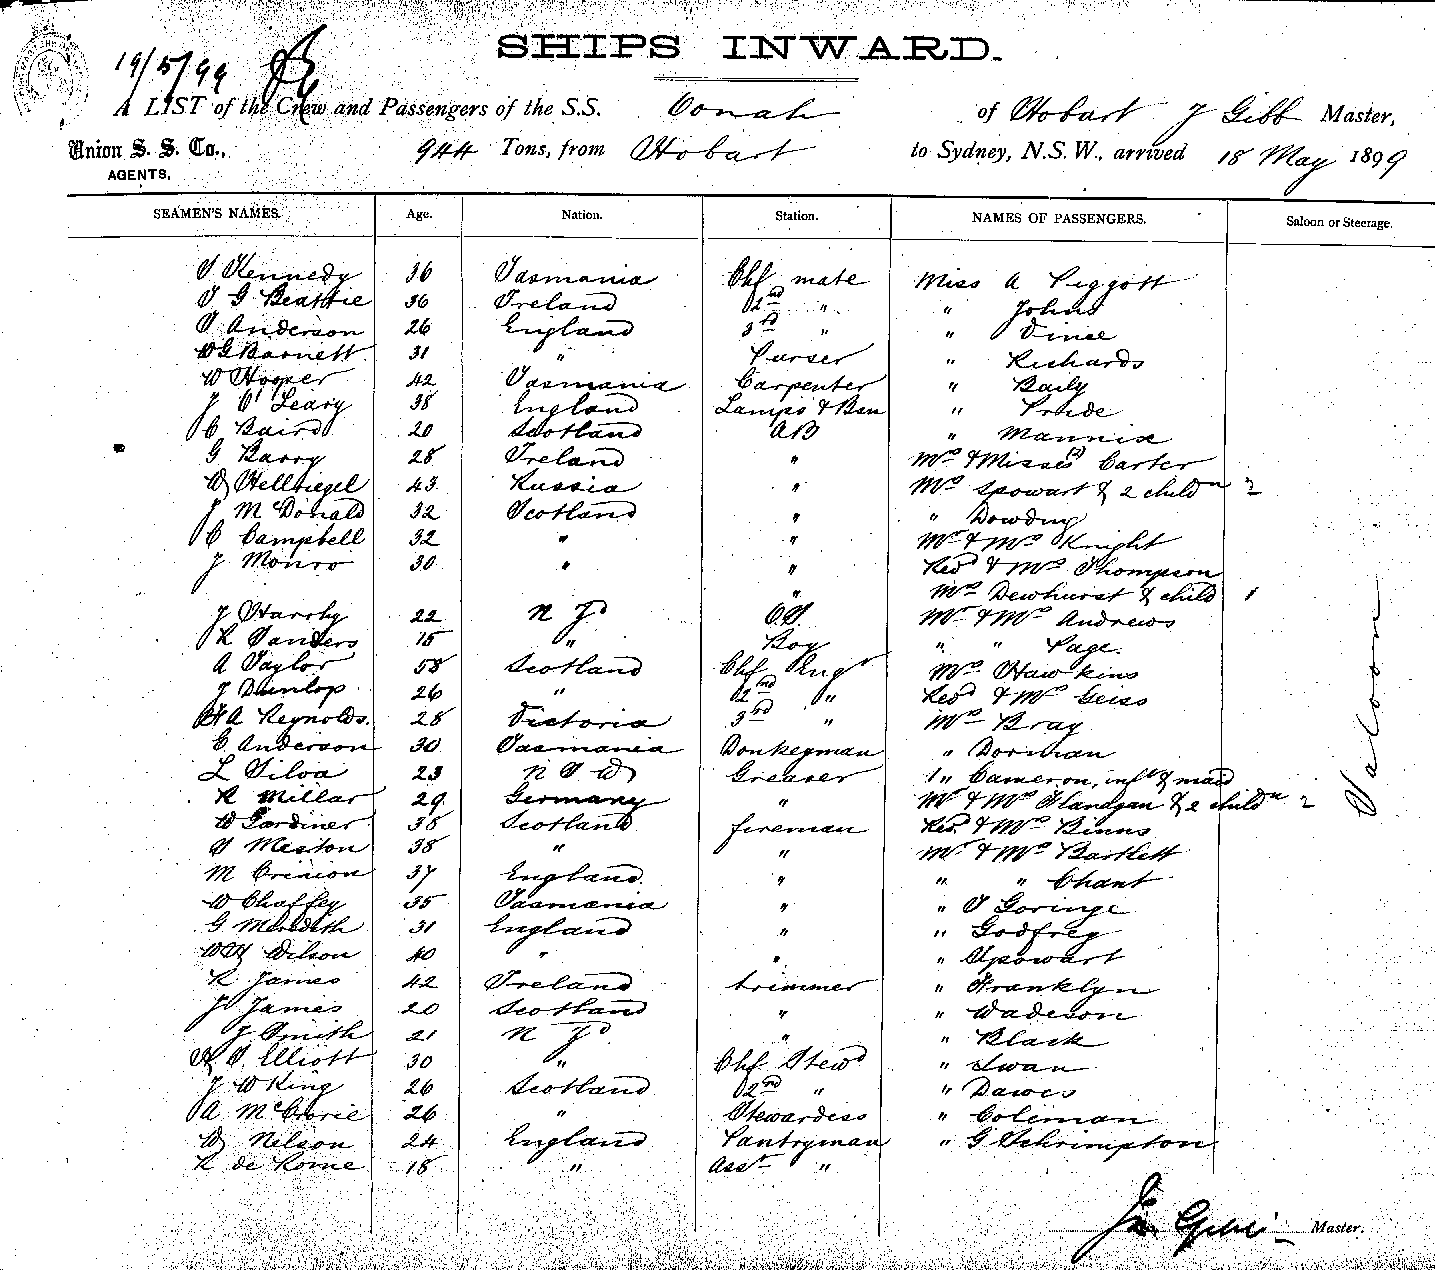 SHIPS INWARD.
19/5/99
A LIST of the Crew and Passengers of the S.S. Oonah of Hobart J Gibb Master,
Union S. S. Co., 944 Tons, from Hobart to Sydney, N.S.W., arrived 18 May 1899
AGENTS.
SEAMEN'S NAMES. Age. Nation. Station. NAMES OF PASSENGERS. Saloon or Steerage.
S Kennedy 36 Tasmania Chf mate Miss A Piggott
T G Beattie 36 Ireland 2nd " " Johns
S Anderson 26 England 3rd " " Vince
W G Barnett 31 " Purser " Richards
W Hooper 42 Tasmania Carpenter " Baily
J O'Leary 38 England Lamps & " Pride
C Baird 20 Scotland AB " Mannix
G Barry 28 Ireland " Mrs & Misses (2) Carter
W Hellriegel 43 Russia " Mrs Spowart & 2 childn 2
J McDonald 32 Scotland " " Dowding
C Campbell 32 " " Mr & Mrs Knight
J Monro 30 " " Revd & Mrs Thompson
" Mrs Dewhurst & child 1
J Harrby 22 N Zd OS Mr & Mrs Andrews
R Sanders 15 " Boy " " Page.
A Taylor 58 Scotland Chf Engr Mrs Hawkins
J Dunlop 26 " 2nd " Revd & Mrs Geiss
H A Reynolds. 28 Victoria 3rd " Mrs Bray
C Anderson 30 Tasmania Donkeyman " Dorman
L Silva 23 N S W Greaser " Cameron, inft & maid
R Millar 29 Germany " Mr & Mrs Flanagan & 2 childn 2
W Gardiner 38 Scotland fireman Revd & Mrs Binns
S Meston 38 " " Mr & Mrs Bartlett
M Crinion 37 England " " " Chant
W Chaffey 35 Tasmania " " S Goringe
G Meredith 31 England " " Godfrey
W H Wilson 40 " " " Spowart
R James 42 Ireland trimmer " Franklyn
J James 20 Scotland " " Wadeson
J Smith 21 N Zd " " Black
A S Elliott 30 " Chf Stewd " Swan
J W King 26 Scotland 2nd " " Dawes
A McCrorie 26 " Stewardess " Coleman
W Nelson 24 England Pantryman " G Schrimpton
R de Rome 18 " Asst "
Saloon
Jn Gibb Master.